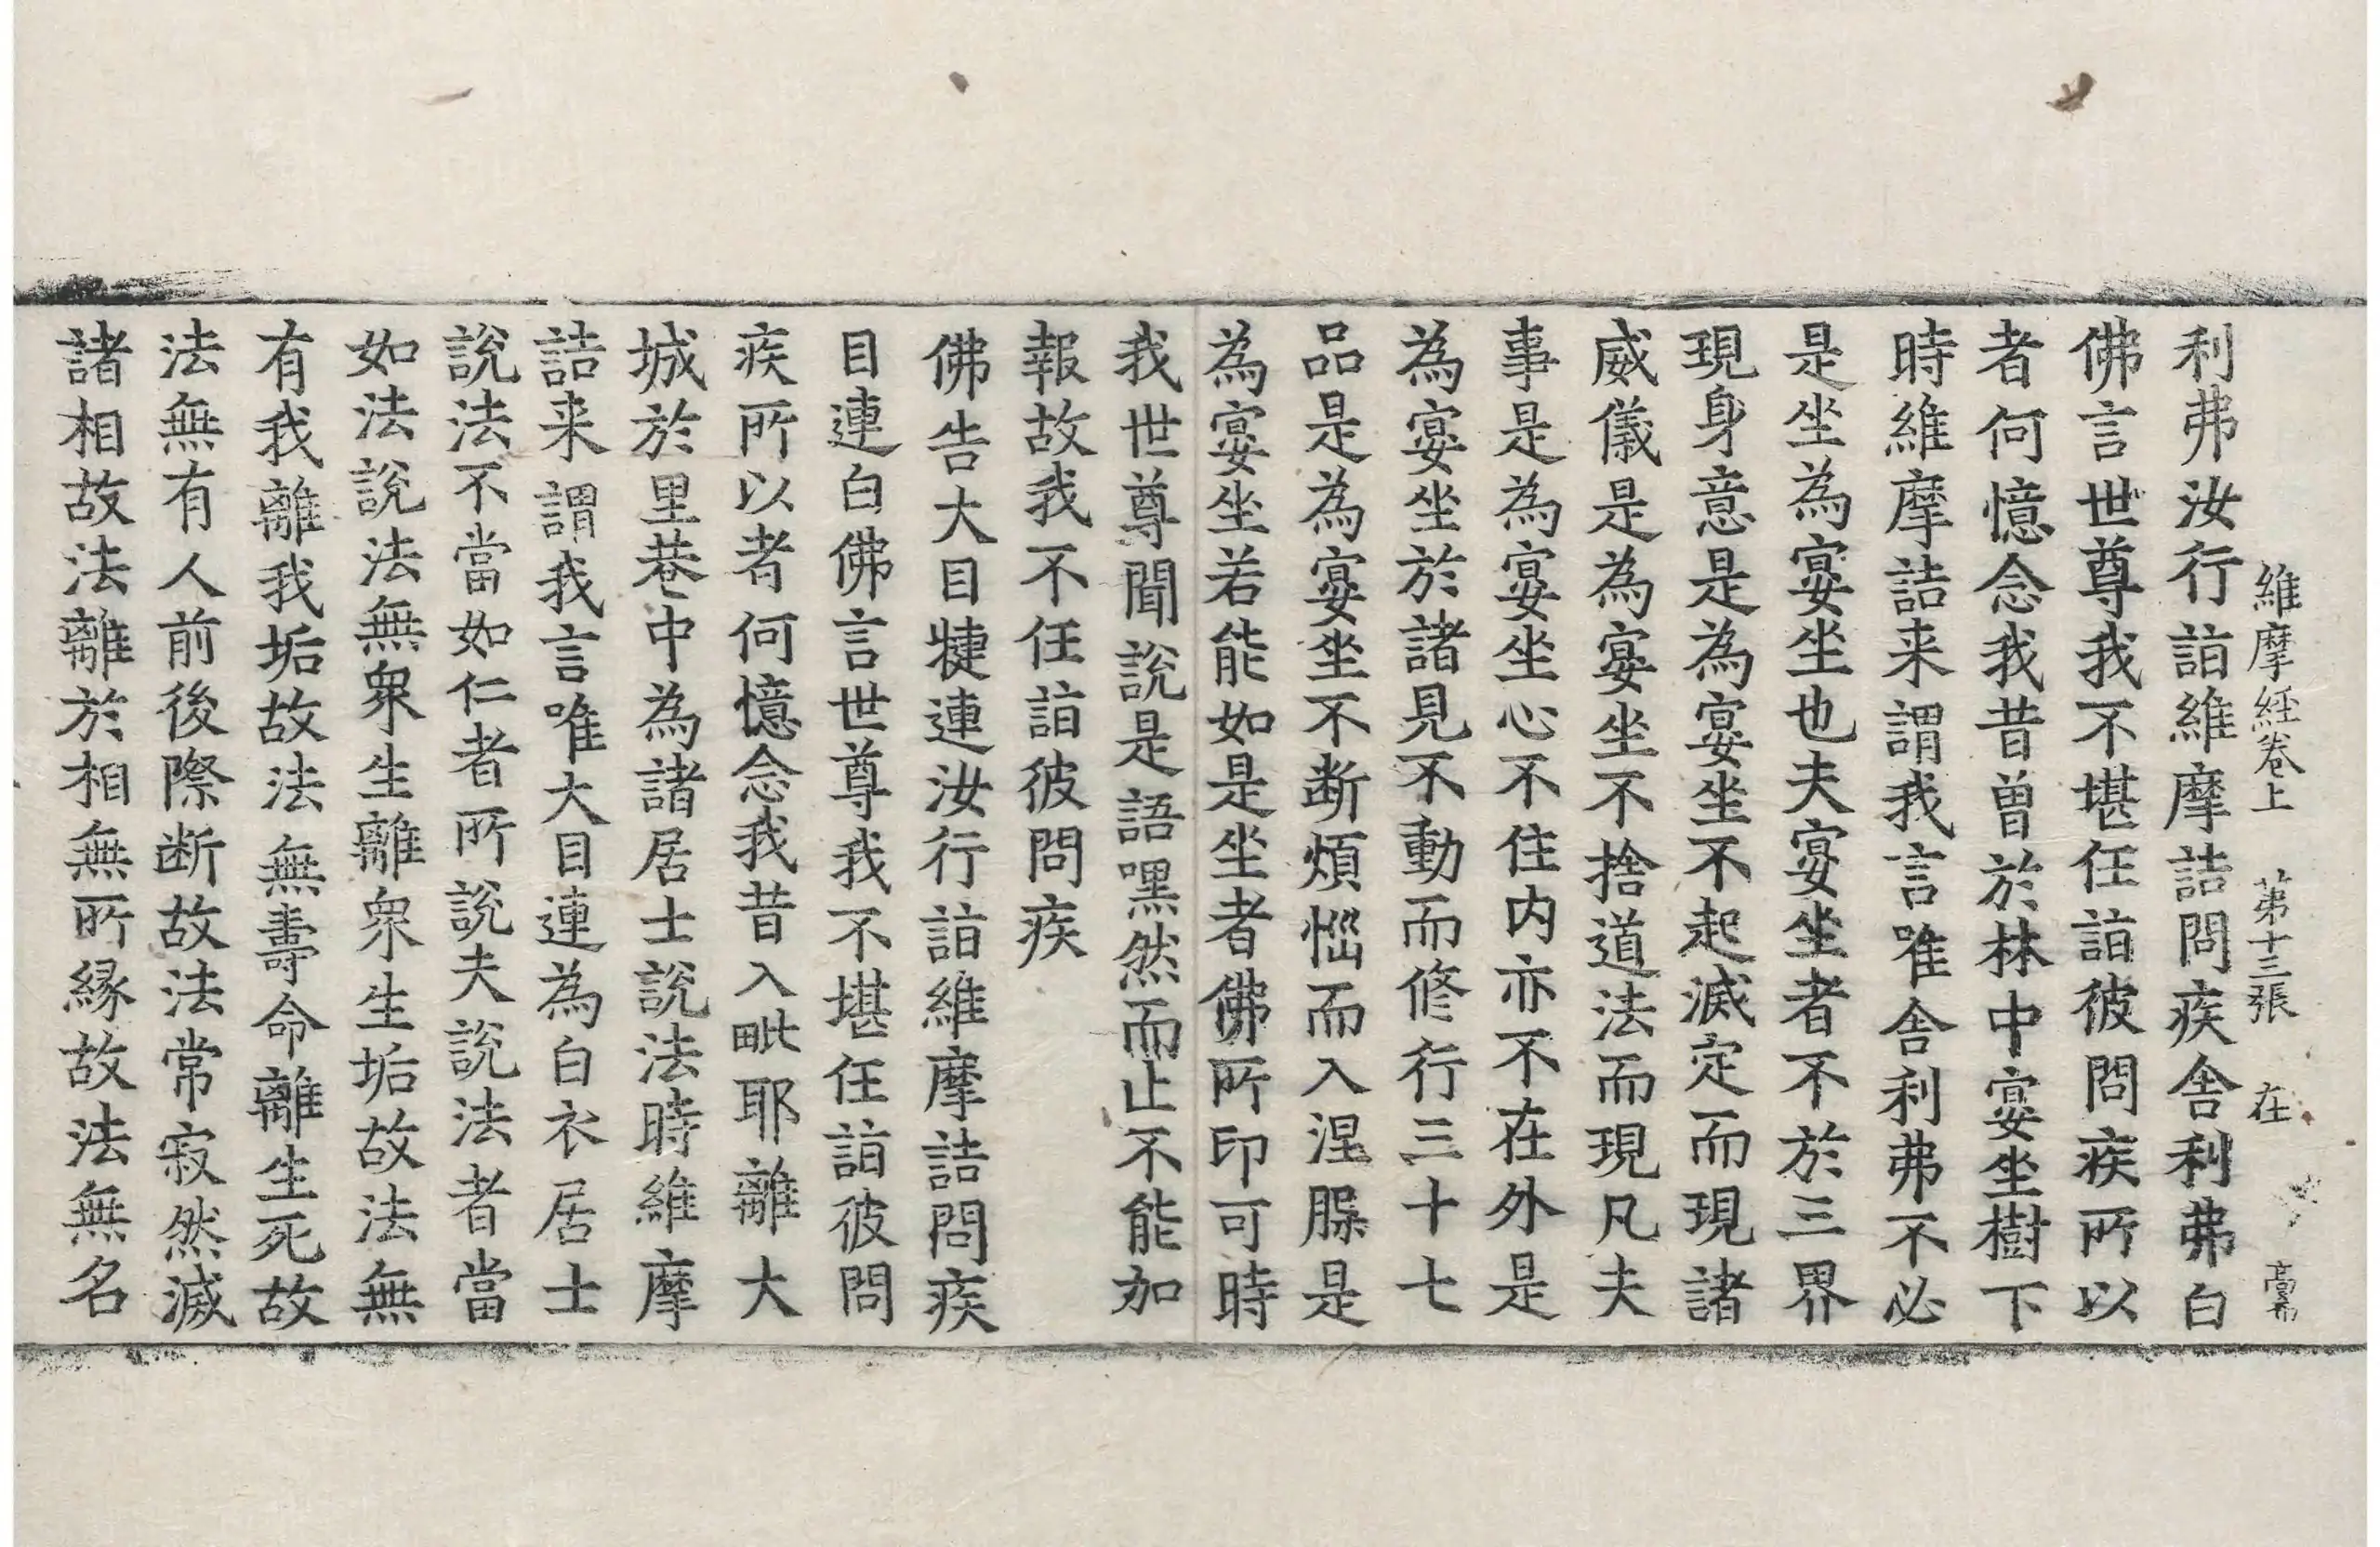 維摩経卷上 第十三張 在 㐮
利弗汝行詣維摩詰問疾舎利弗白
佛言世尊我不堪任詣彼問疾所以
者何憶念我昔曽於林中宴坐樹下
時維摩詰来謂我言唯舎利弗不必
是坐為宴坐也夫宴坐者不於三界
現身意是為宴坐不起滅定而現諸
威儀是為宴坐不捨道法而現凡夫
事是為宴坐心不住内亦不在外是
為宴坐於諸見不動而修行三十七
品是為宴坐不断煩惱而入涅槃是
為宴坐若能如是坐者佛所印可時
我世尊聞說是語嘿然而止不能加
報故我不任詣彼問疾
佛告大目犍連汝行詣維摩詰問疾
目連白佛言世尊我不堪任詣彼問
疾所以者何憶念我昔入毗耶離大
城於里巷中為諸居士說法時維摩
詰来謂我言唯大目連為白衣居士
說法不當如仁者所說夫說法者當
如法說法無衆生離衆生垢故法無
有我離我垢故法無壽命離生死故
法無有人前後際断故法常寂然滅
諸相故法離於相無所縁故法無名